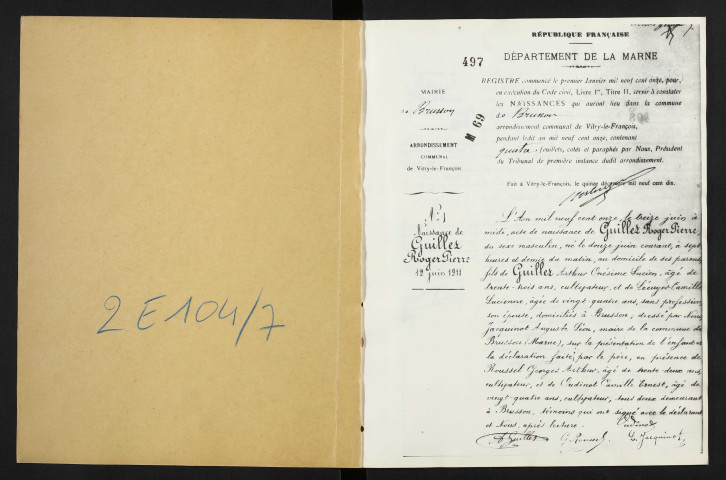 2 E 104/7
RÉPUBLIQUE FRANÇAISE
497
DÉPARTEMENT DE LA MARNE
MAIRIE
de Brusson
ARRONDISSEMENT
COMMUNAL
de Vitry-le-François
M 69
REGISTRE commencé le premier Janvier mil neuf cent onze, pour,
en exécution du Code civil, Livre Ier, Titre II, servir à constater
les NAISSANCES qui auront lieu dans la commune
de Brusson
arrondissement communal de Vitry-le-François,
pendant ledit an mil neuf cent onze, contenant
quatre feuillets, cotés et paraphés par Nous, Président
du Tribunal de première instance dudit arrondissement.
Fait à Vitry-le-François, le quinze décembre mil neuf cent dix.
N° 1
Naissance de
Guillez
Roger Pierre
12 juin 1911
L'An mil neuf cent onze, le treize juin à
midi, acte de naissance de Guillez Roger Pierre,
du sexe masculin, né le douze juin courant, à sept
heures et demie du matin, au domicile de ses parents,
fils de Guillez Arthur Onésime Lucien, âgé de
trente-trois ans, cultivateur, et de Lécuyer Camille
Lucienne, âgée de vingt-quatre ans, sans profession,
son épouse, domiciliés à Brusson; dressé par Nous
Jacquinot Auguste Léon, maire de la commune de
Brusson (Marne), sur la présentation de l'enfant et
la déclaration faite par le père, en présence de
Roussel Georges Arthur, âgé de trente-deux ans,
cultivateur, et de Oudinot Camille Ernest, âgé de
vingt-quatre ans, cultivateur, tous deux demeurant
à Brusson, témoins qui ont signé avec le déclarant
et Nous, après lecture. Oudinot
A. Guillez G. Roussel L. Jacquinot